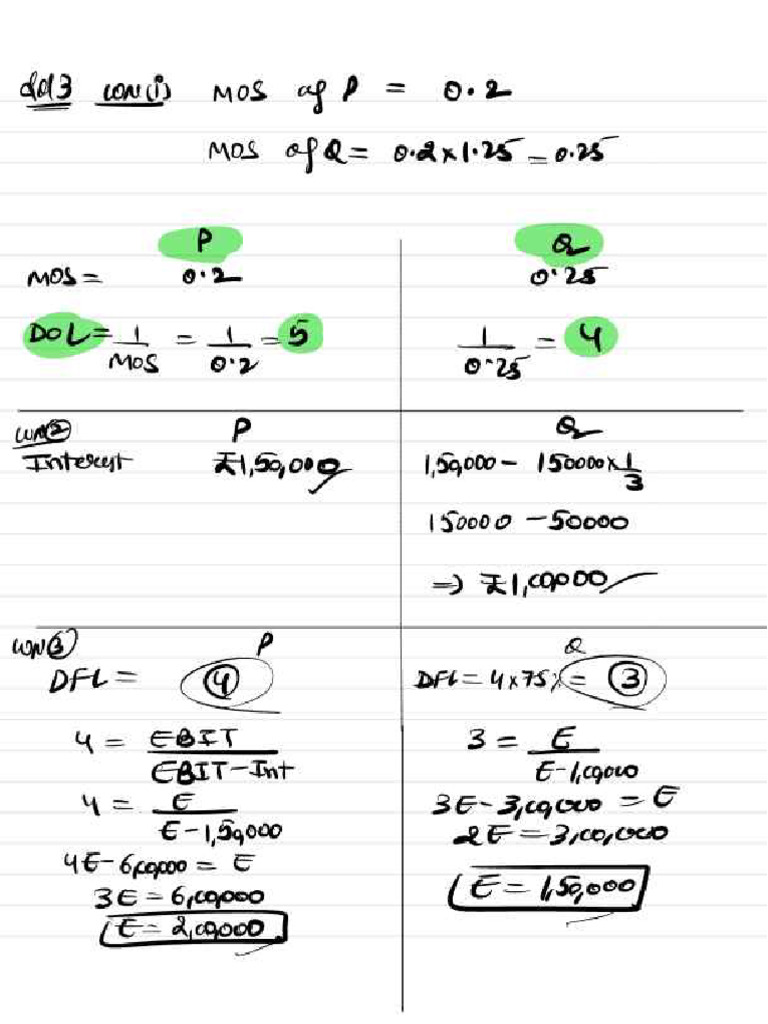 WN(1) MOS of P = 0.2
MOS of Q = 0.2×1.25 = 0.25
P
MOS = 0.2
DOL = 1/MOS = 1/0.2 = 5
Q
0.25
1/0.25 = 4
WN(2) P
Interest ₹1,50,000
Q
1,50,000 - 150000×1/3
150000 - 50000
⇒ ₹1,00,000
WN(3) P
DFL = 4
4 = EBIT/EBIT-Int
4 = E/E-1,50,000
4E-6,00,000 = E
3E = 6,00,000
E = 2,00,000
Q
DFL = 4×75% = 3
3 = E/E-1,00,000
3E-3,00,000 = E
2E = 3,00,000
E = 1,50,000